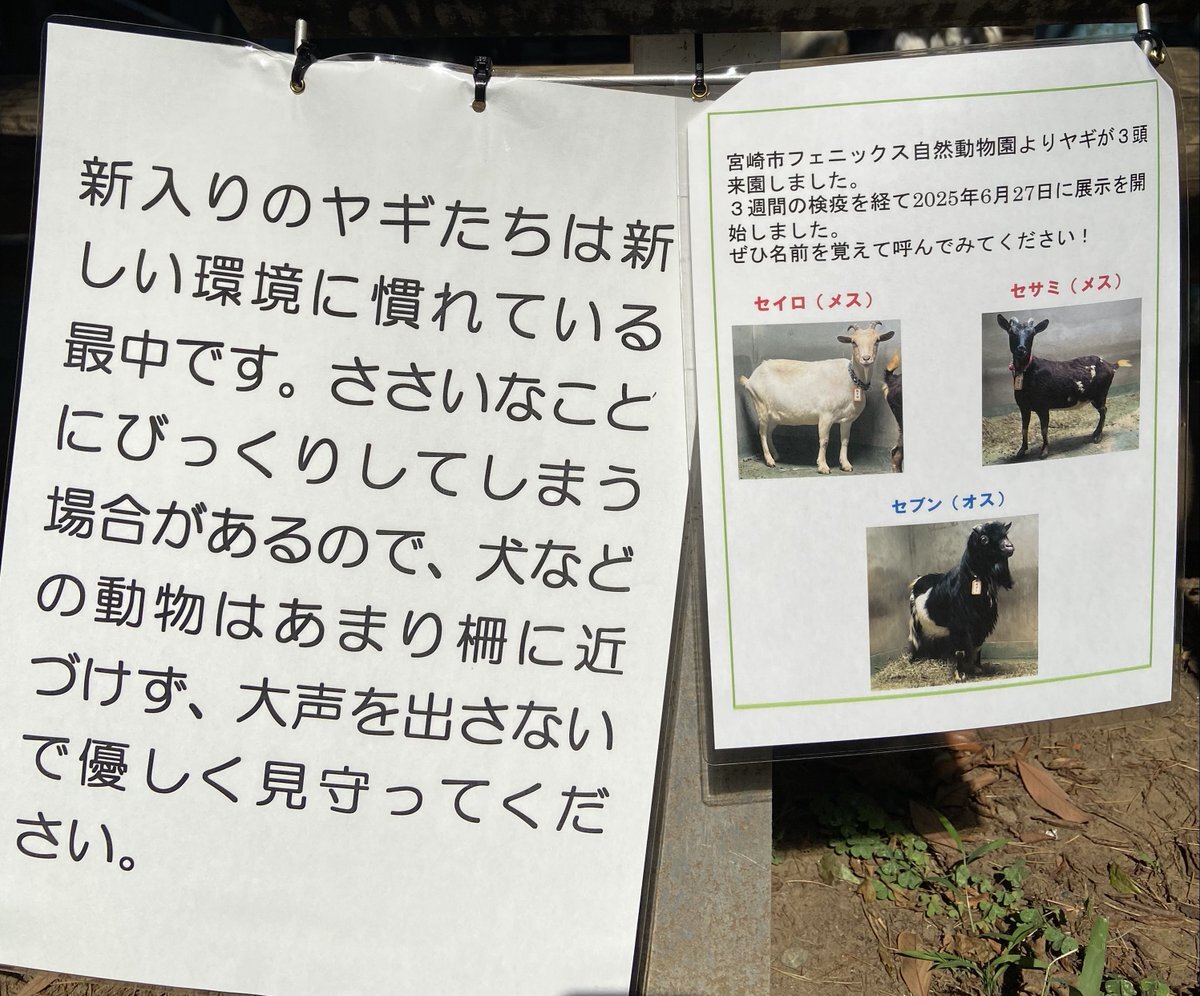 新入りのヤギたちは新
しい環境に慣れている
最中です。ささいなこと
にびっくりしてしまう
場合があるので、犬など
の動物はあまり柵に近
づけず、大声を出さない
で優しく見守ってくだ
さい。
宮崎市フェニックス自然動物園よりヤギが3頭
来園しました。
3週間の検疫を経て2025年6月27日に展示を開
始しました。
ぜひ名前を覚えて呼んでみてください！
セイロ（メス）
セサミ（メス）
セブン（オス）